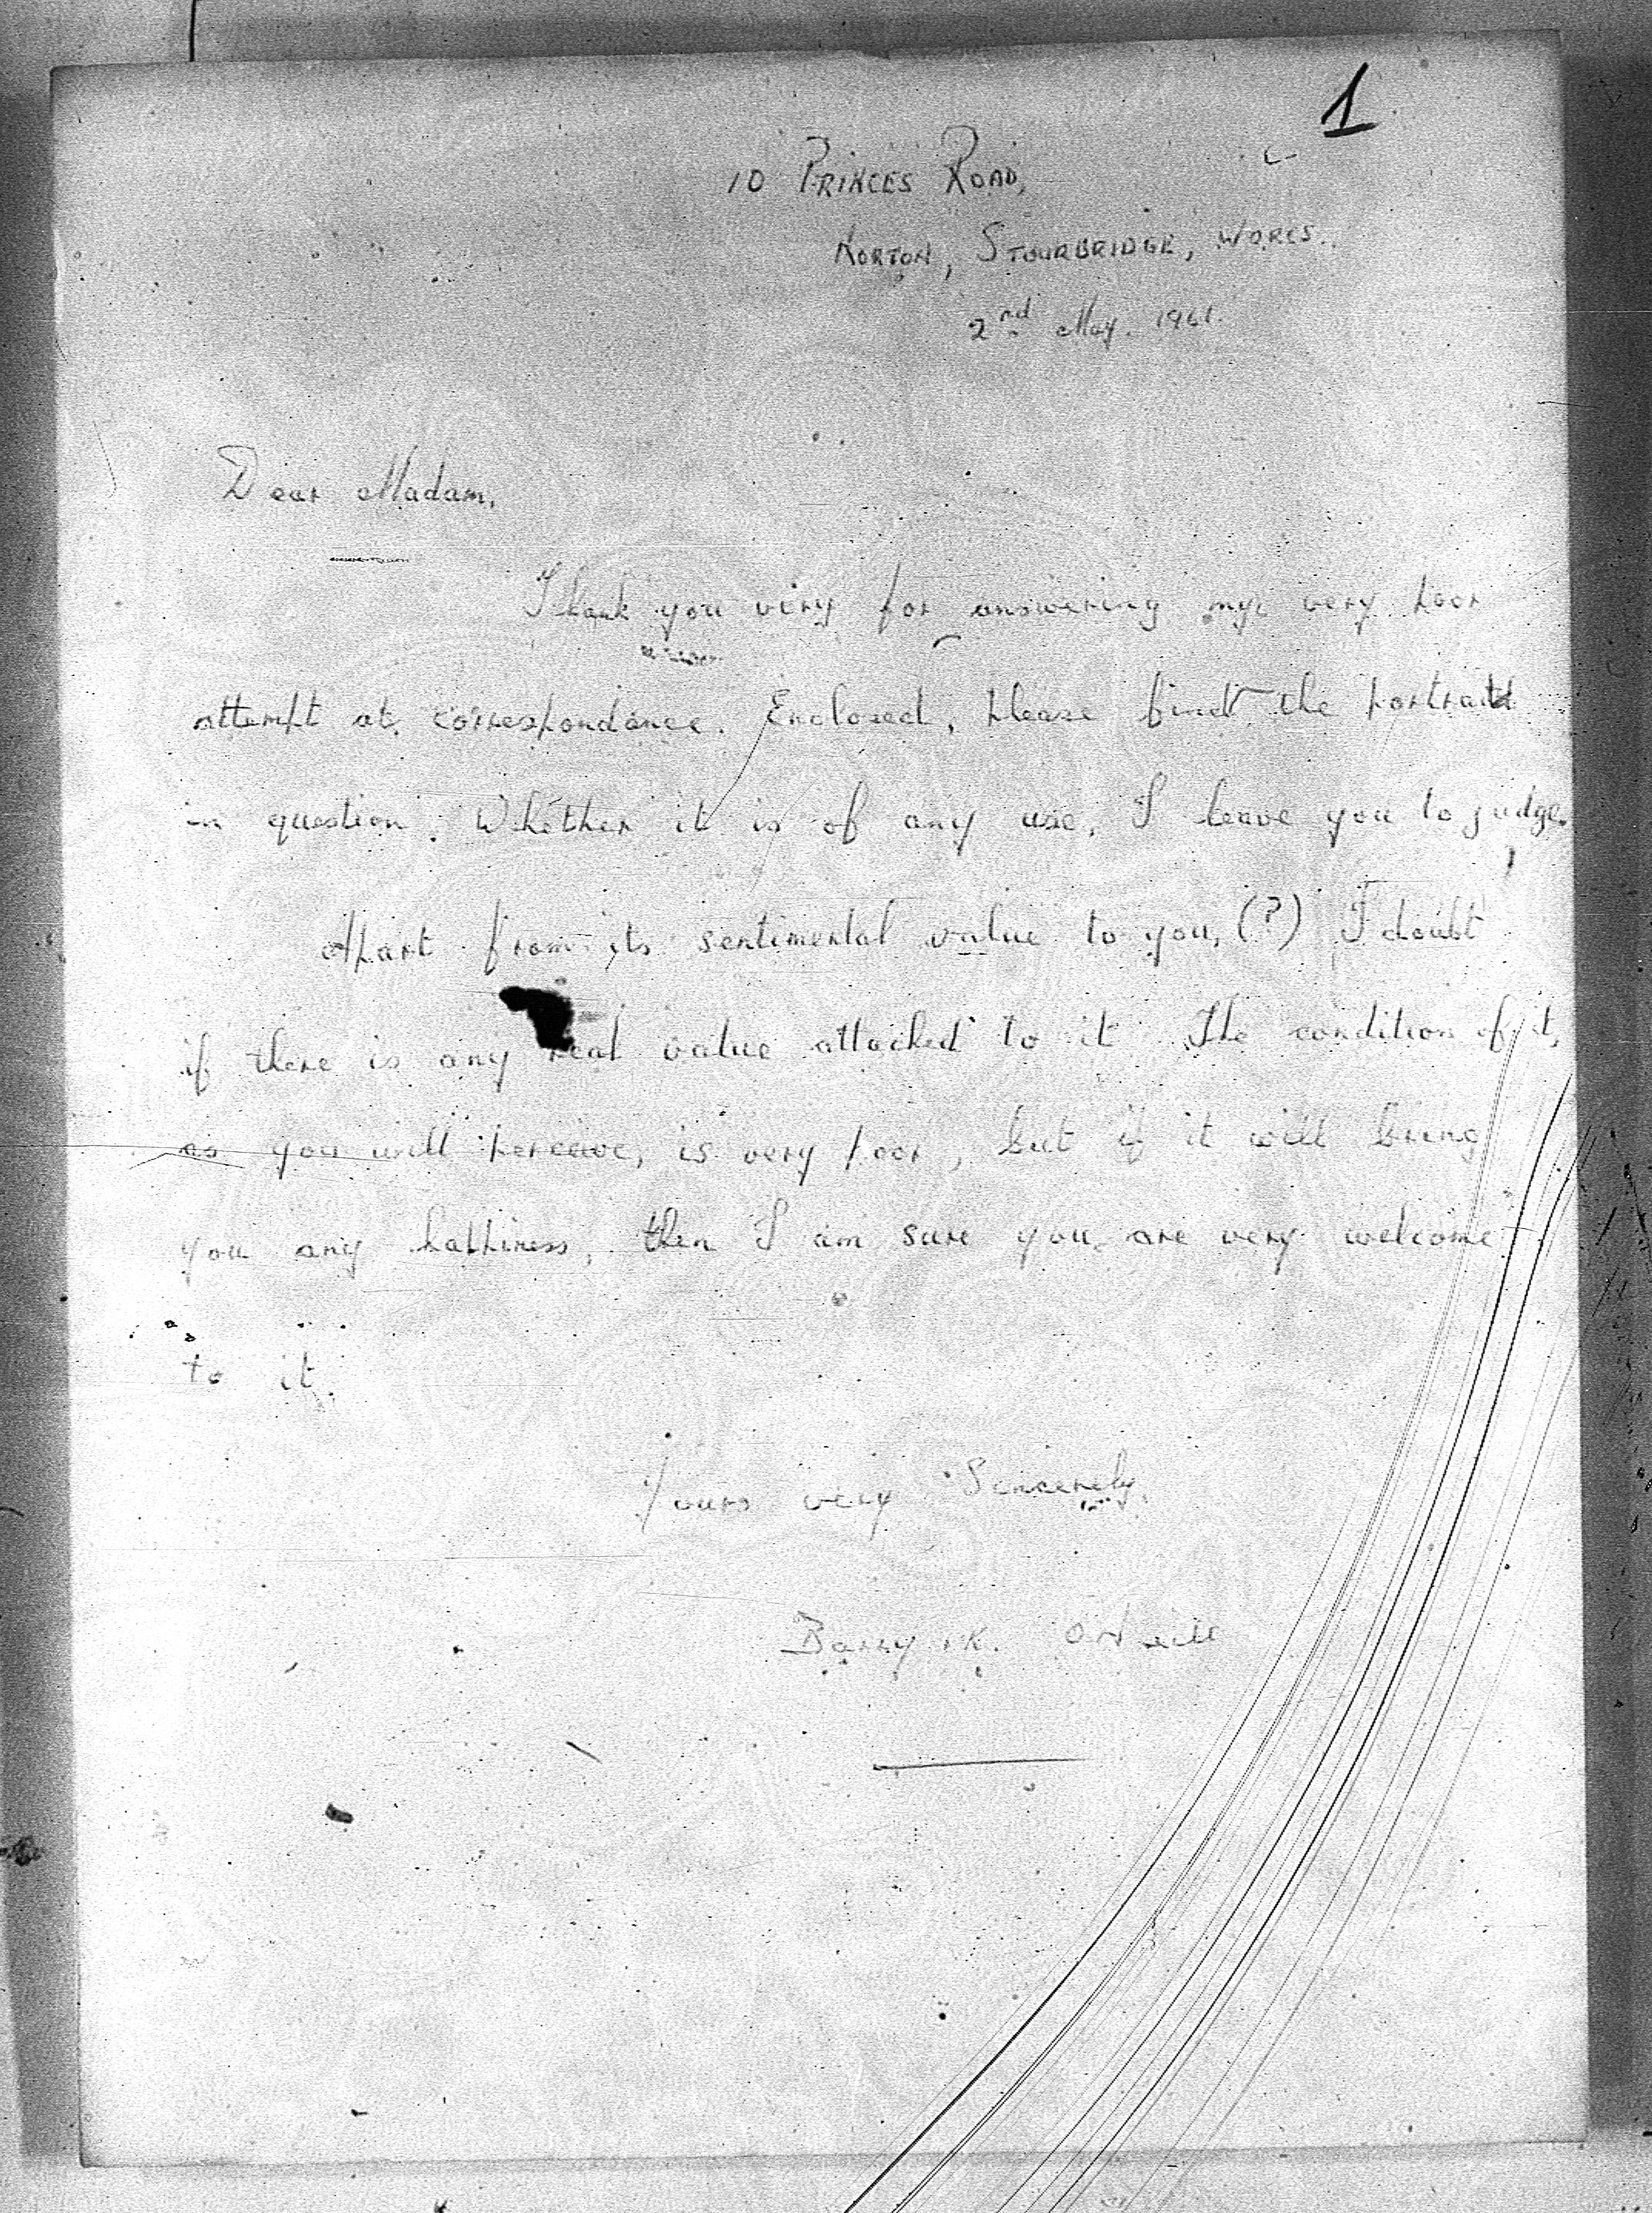 1
10 PRINCES ROAD,
NORTON, STOURBRIDGE, WORCS.
2nd May. 1961.
Dear Madam,
Thank you very for answering my very poor
attempt at correspondance. Enclosed, please find the portrait
in question. Whether it is of any use, I leave you to judge.
Apart from its sentimental value to you, (?) I doubt
if there is any real value attached to it. The condition of it,
as you will perceive, is very poor, but if it will bring
you any happiness, then I am sure you are very welcome
to it.
Yours very Sincerely,
Barry K. O'Neill